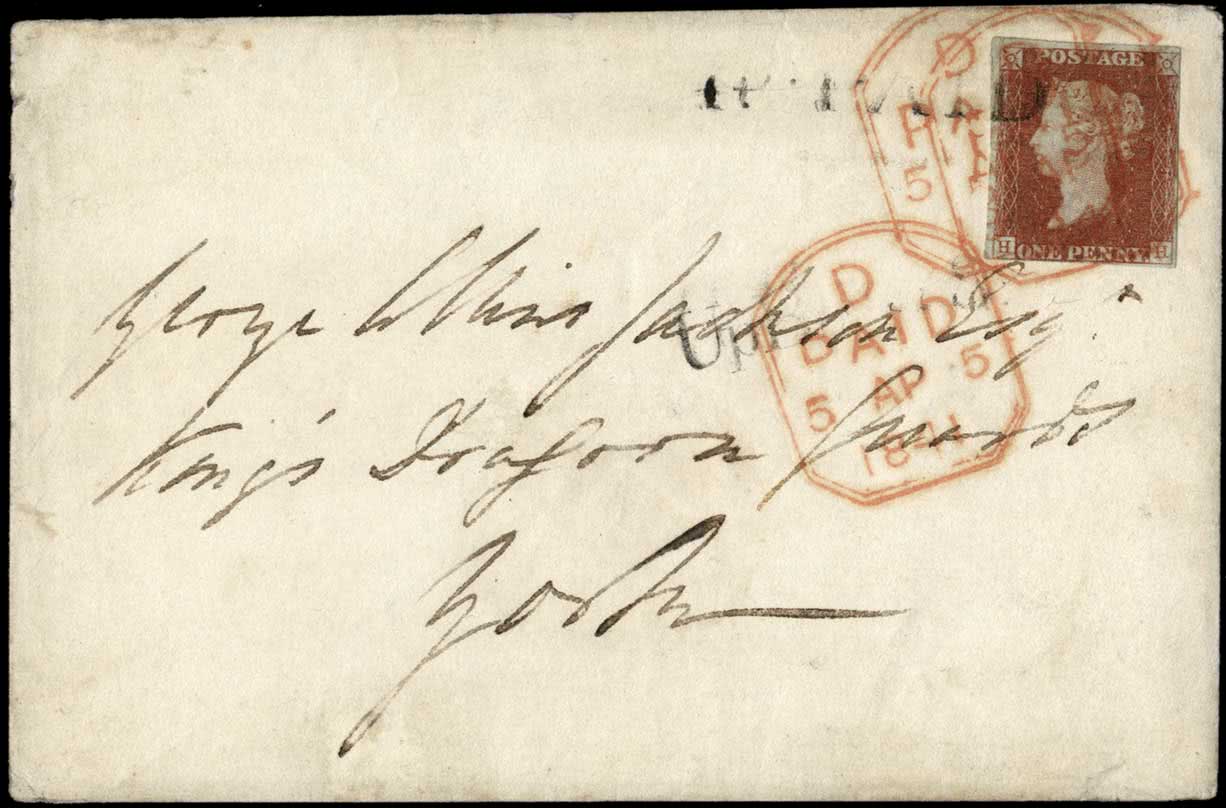 POSTAGE
H ONE PENNY H
D
P
5
D
PAID
5 AP 5
1841
George Jackson Esqr
King's Dragoon Guards
York